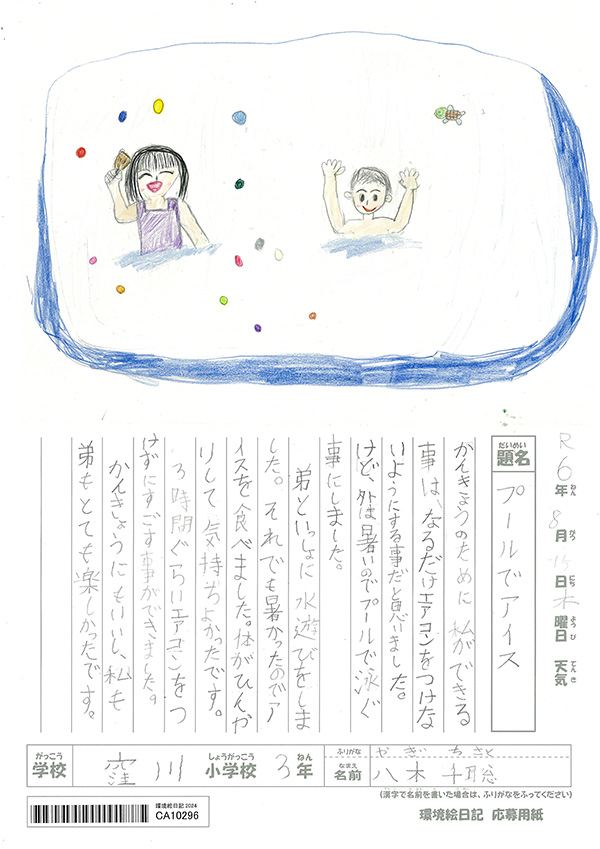 R6年ねん8月がつ15日にち木曜日ようび 天気てんき
だいめい
題名
プールでアイス
かんきょうのために私ができる
事は、なるだけエアコンをつけな
いようにする事だと思いました。
けど、外は暑いのでプールで泳ぐ
事にしました。
弟といっしょに水遊びをしま
した。それでも暑かったのでア
イスを食べました。体がひんや
りして気持ぢよかったです。
3時間ぐらいエアコンをつ
けずにすごす事ができました。
かんきょうにもいいし、私も
弟もとても楽しかったです。
がっこう
学校
窪川
しょうがっこう
小学校
3年ねん
ふりがな
やぎ ちさと
なまえ
名前
八木 千聡
(漢字で名前を書いた場合は、ふりがなをふってください)
環境絵日記2024
CA10296
環境絵日記 応募用紙